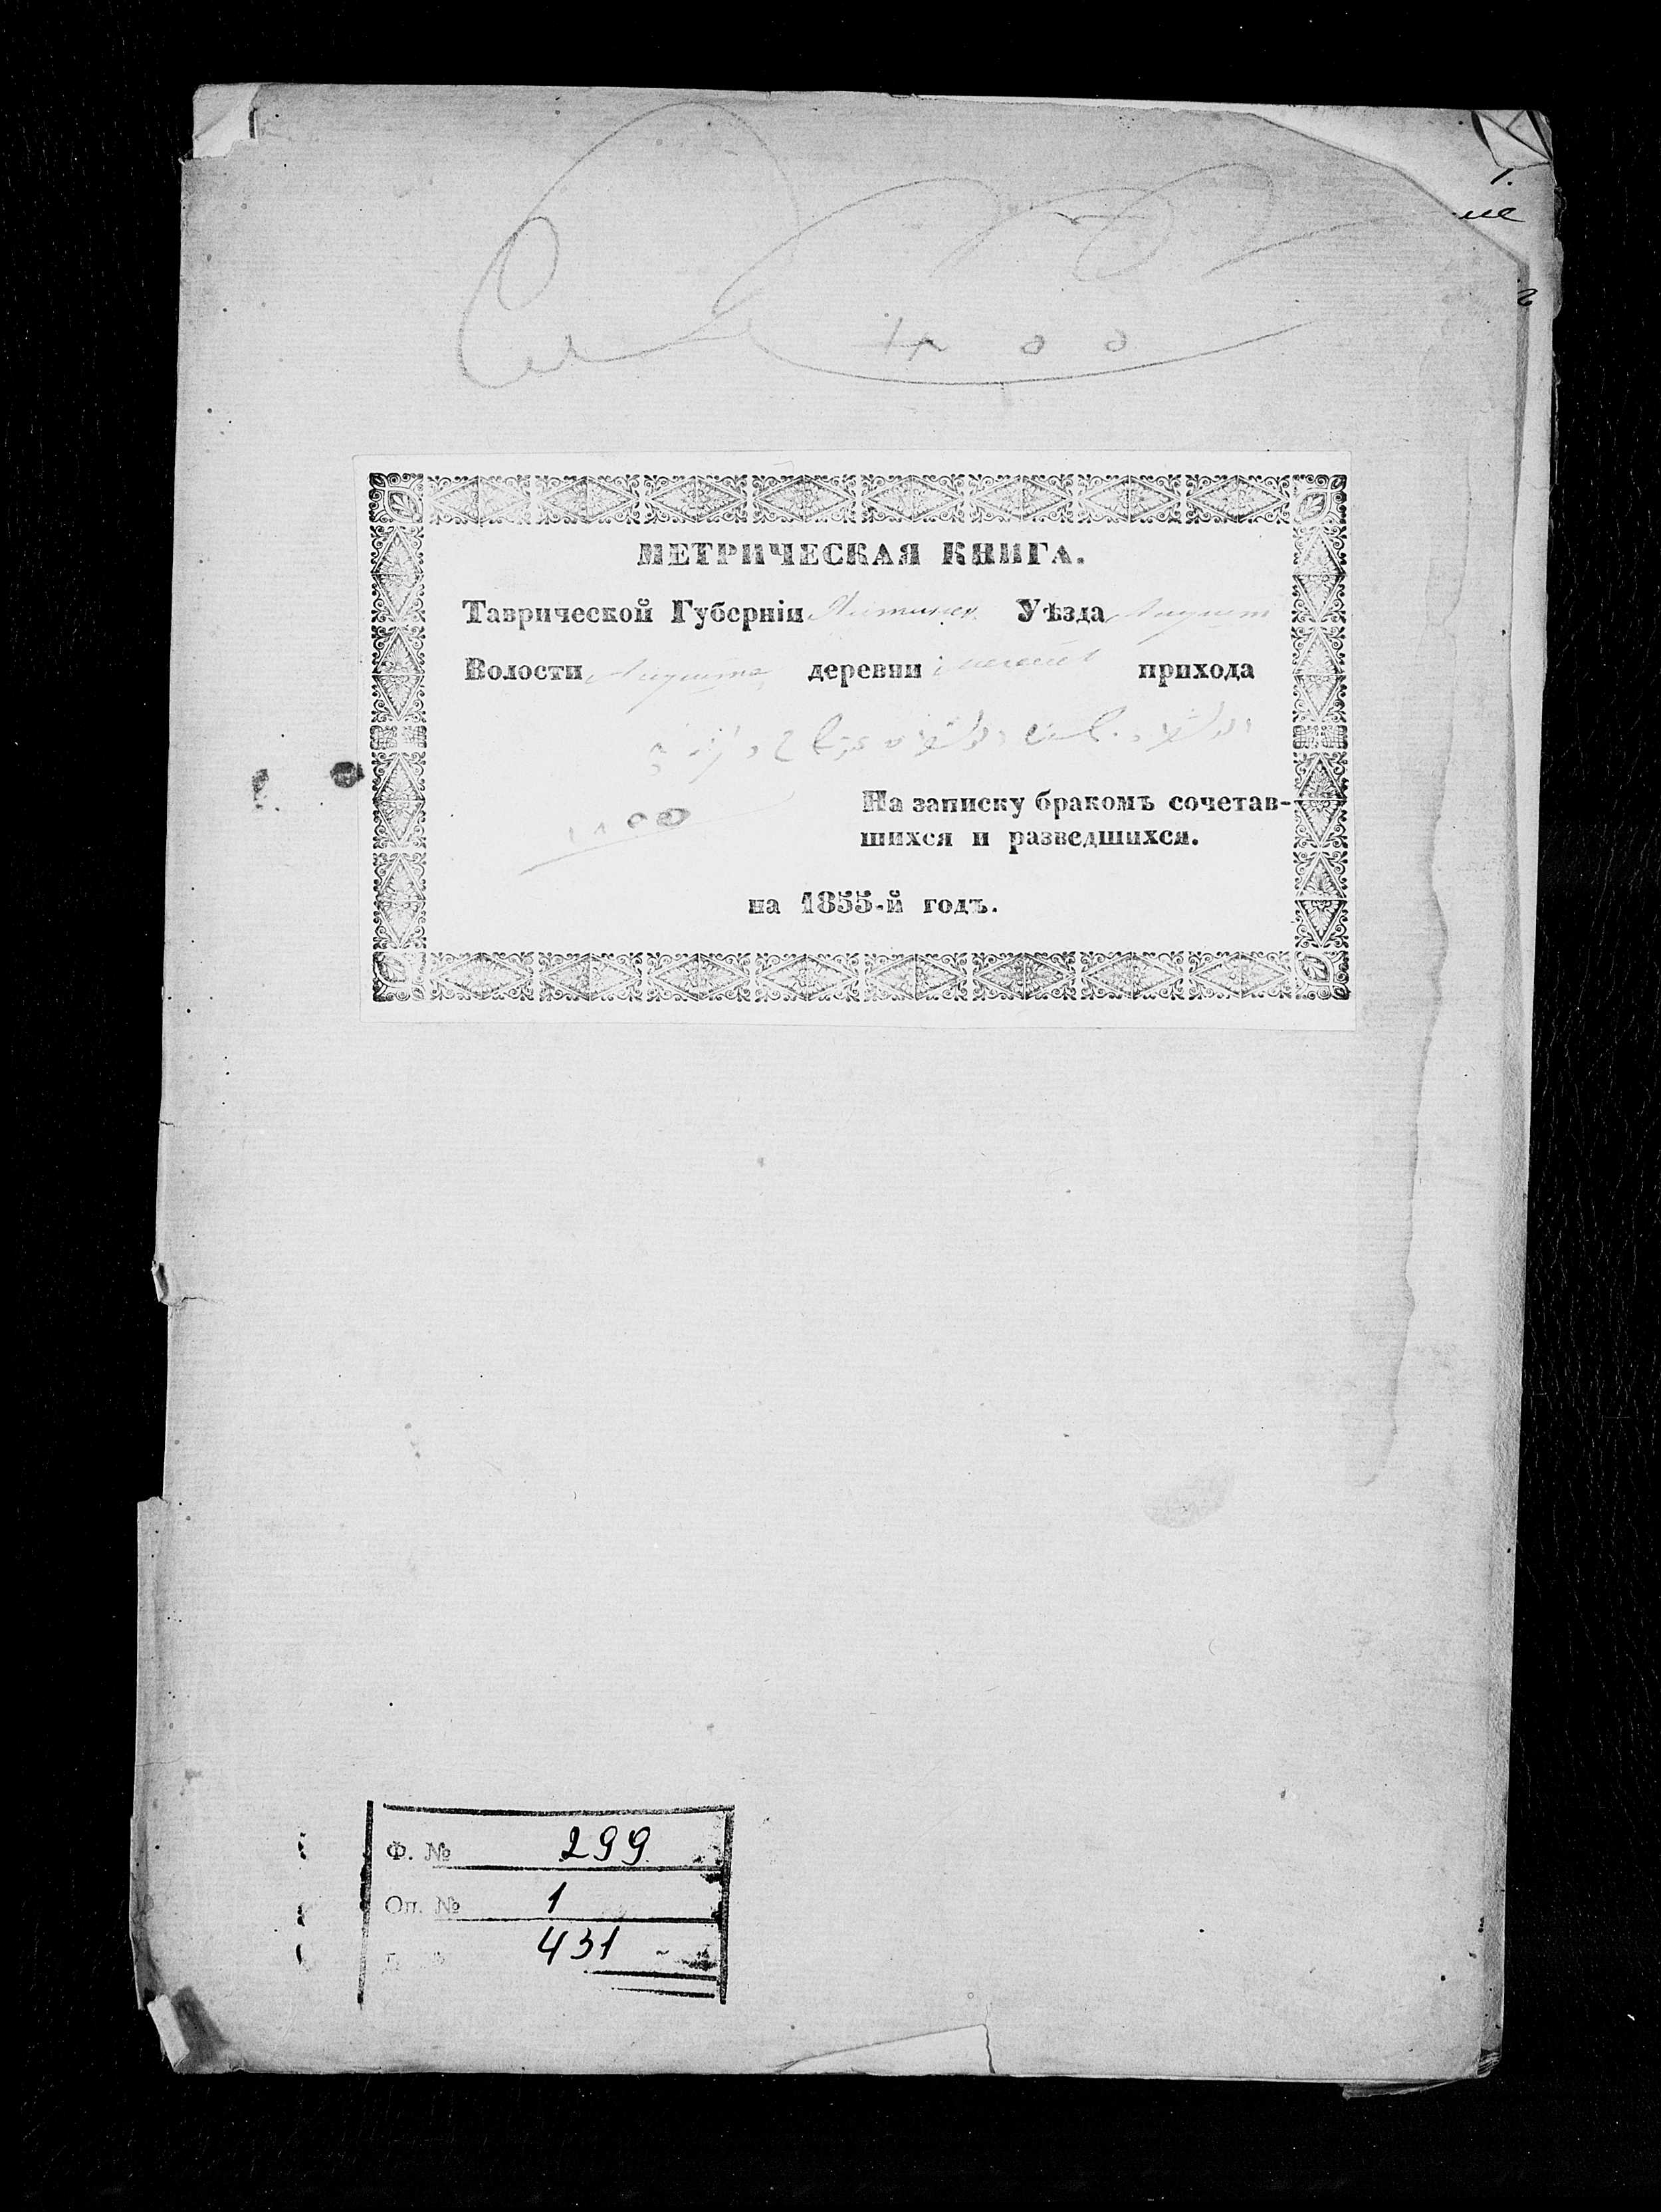 ١٨٥٥
МЕТРИЧЕСКАЯ КНИГА.
Таврической Губерніи Ялтинск. Уѣзда
Волости Алушта деревни прихода
١٨٥٥
На записку бракомъ сочетав-
шихся и разведшихся.
на 1855-й годъ.
Ф. № 299
Оп. № 1
431